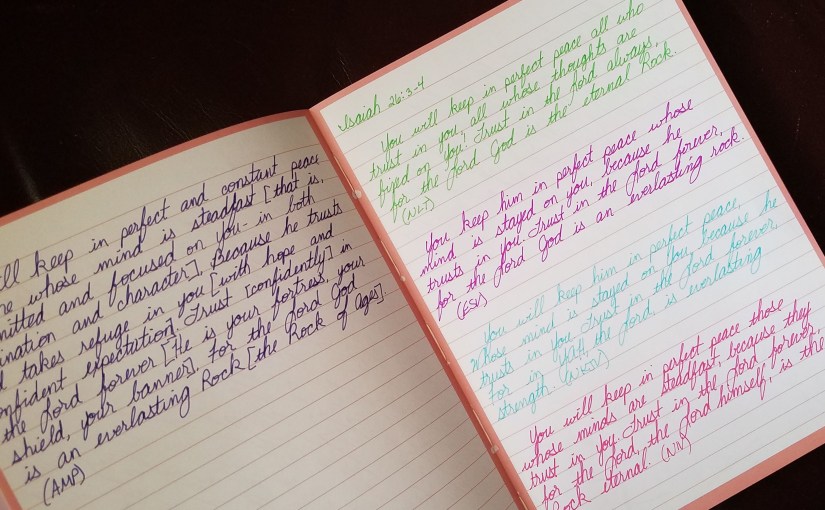 ill keep in perfect and constant peace
ne whose mind is steadfast [that is,
mitted and focused on you - in both
ination and character], Because he trusts
d takes refuge in you [with hope and
nfident expectation]. Trust [confidently] in
the Lord forever [He is your fortress, your
shield, your banner], for the Lord God
is an everlasting Rock [the Rock of ages].
(AMP)
Isaiah 26:3-4
You will keep in perfect peace all who
trust in you, all whose thoughts are
fixed on you. Trust in the Lord always,
for the Lord God is the eternal Rock.
(NLT)
You keep him in perfect peace whose
mind is stayed on you, because he
trusts in you. Trust in the Lord forever,
for the Lord God is an everlasting rock.
(ESV)
You will keep him in perfect peace,
Whose mind is stayed on You, because he
trusts in You. Trust in the Lord forever,
For in Yah, the Lord, is everlasting
strength. (NKJV)
You will keep in perfect peace those
whose minds are steadfast, because they
trust in you. Trust in the Lord forever,
for the Lord, the Lord himself, is the
Rock eternal. (NIV)